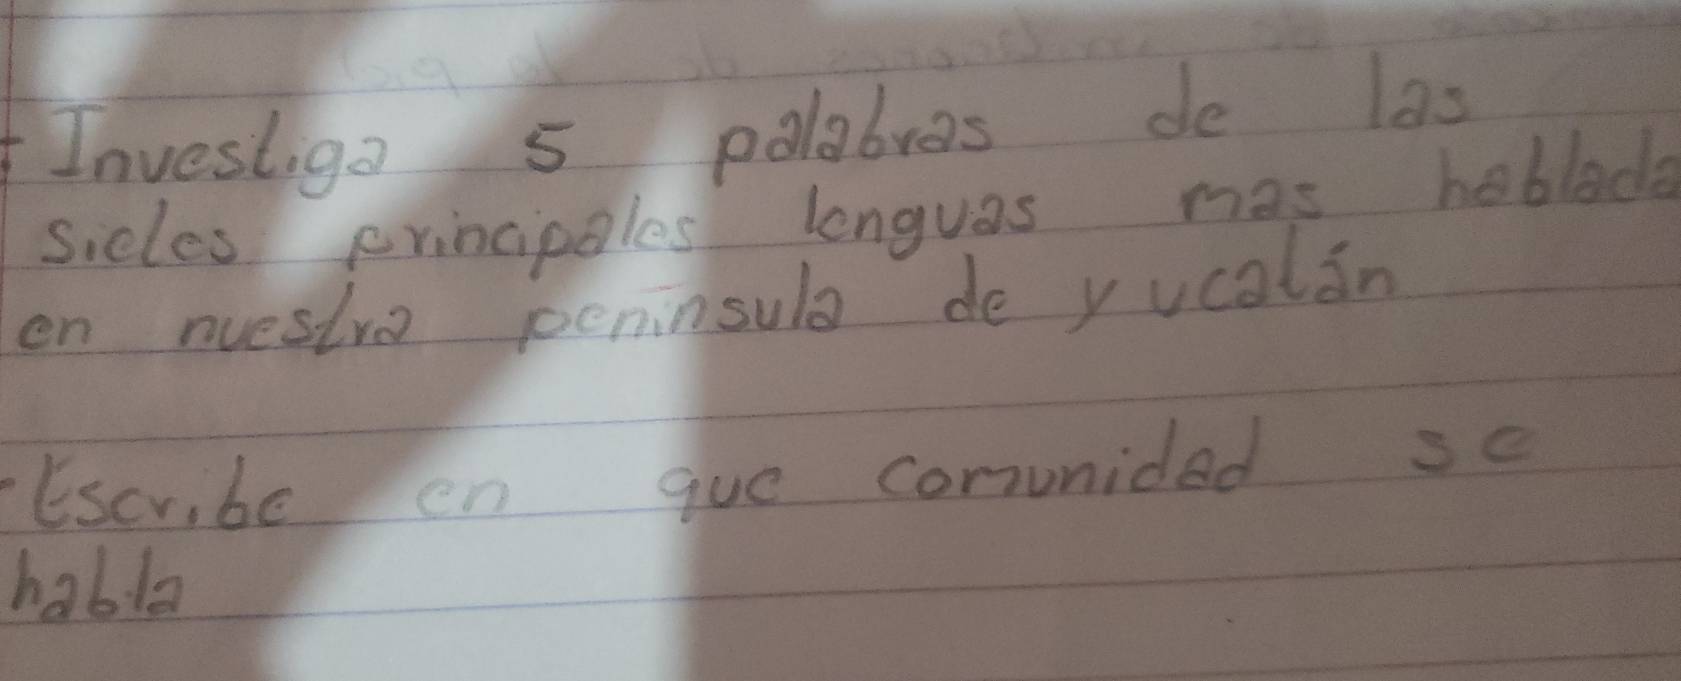 Investiga 5 palabras de las
sietes principales lenguas mas hablada
en nuestra peninsula de yucatán
Escribe en que comunidad se
habla